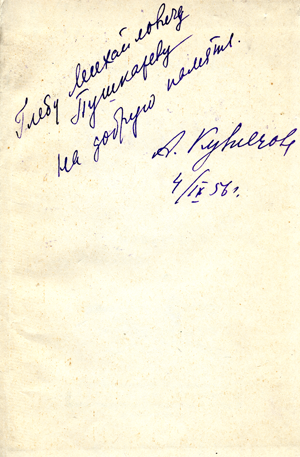 Глебу Михайловичу
Пушкареву
на добрую память.
А. Кузнецов
4/IX 56 г.